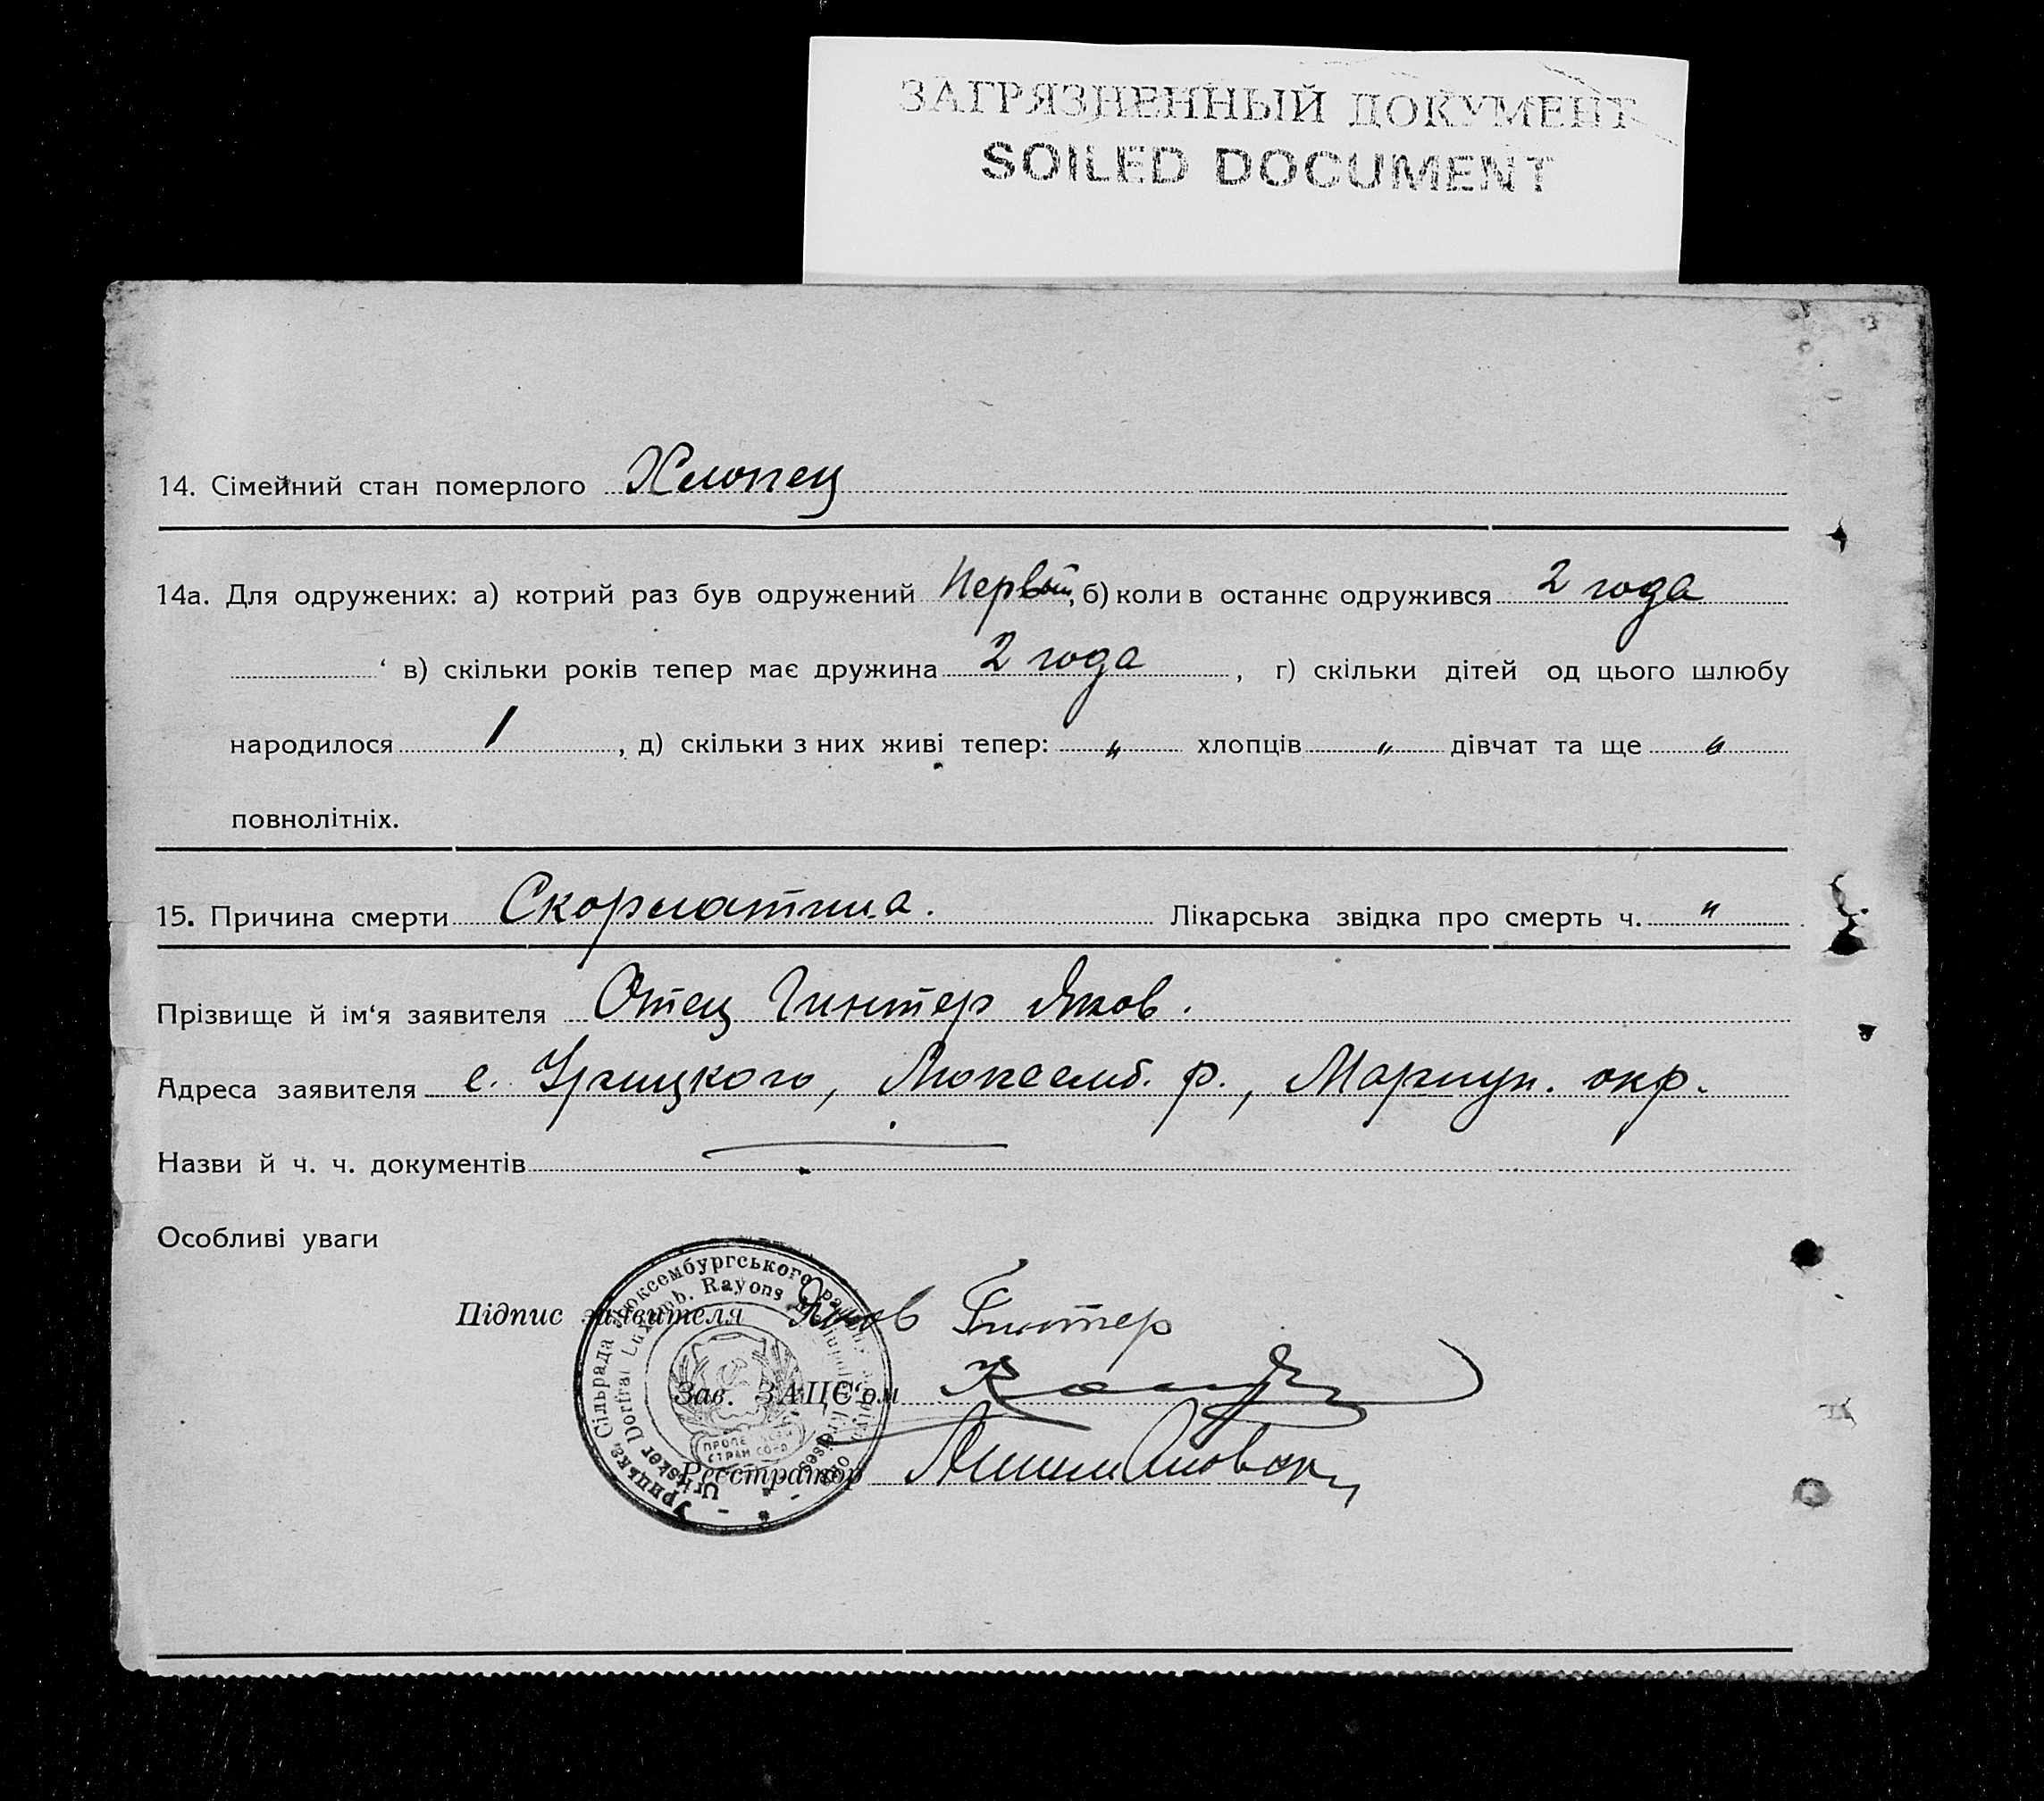 ЗАГРЯЗНЕННЫЙ ДОКУМЕНТ
SOILED DOCUMENT
14. Сімейний стан померлого Хлопец
14а. Для одружених: а) котрий раз був одружений Первый, б) коли в останнє одружився 2 года
‘ в) скільки років тепер має дружина 2 года, г) скільки дітей од цього шлюбу
народилося 1, д) скільки з них живі тепер: „ хлопців „ дівчат та ще „
повнолітніх.
15. Причина смерти Скорлатина. Лікарська звідка про смерть ч. „
Прізвище й ім‘я заявителя Отец Гинтер Яков.
Адреса заявителя с. Урицкого, Люксемб. р., Мариуп. окр.
Назви й ч. ч. документів
Особливі уваги
Підпис заявителя Яков Гинтер
Зав. ЗАЦС‘ом
Реєстратор
Урицька Сільрада Люксембургського
Dorfrat Luxemb. Rayons
ПРОЛЕ
СТРАН